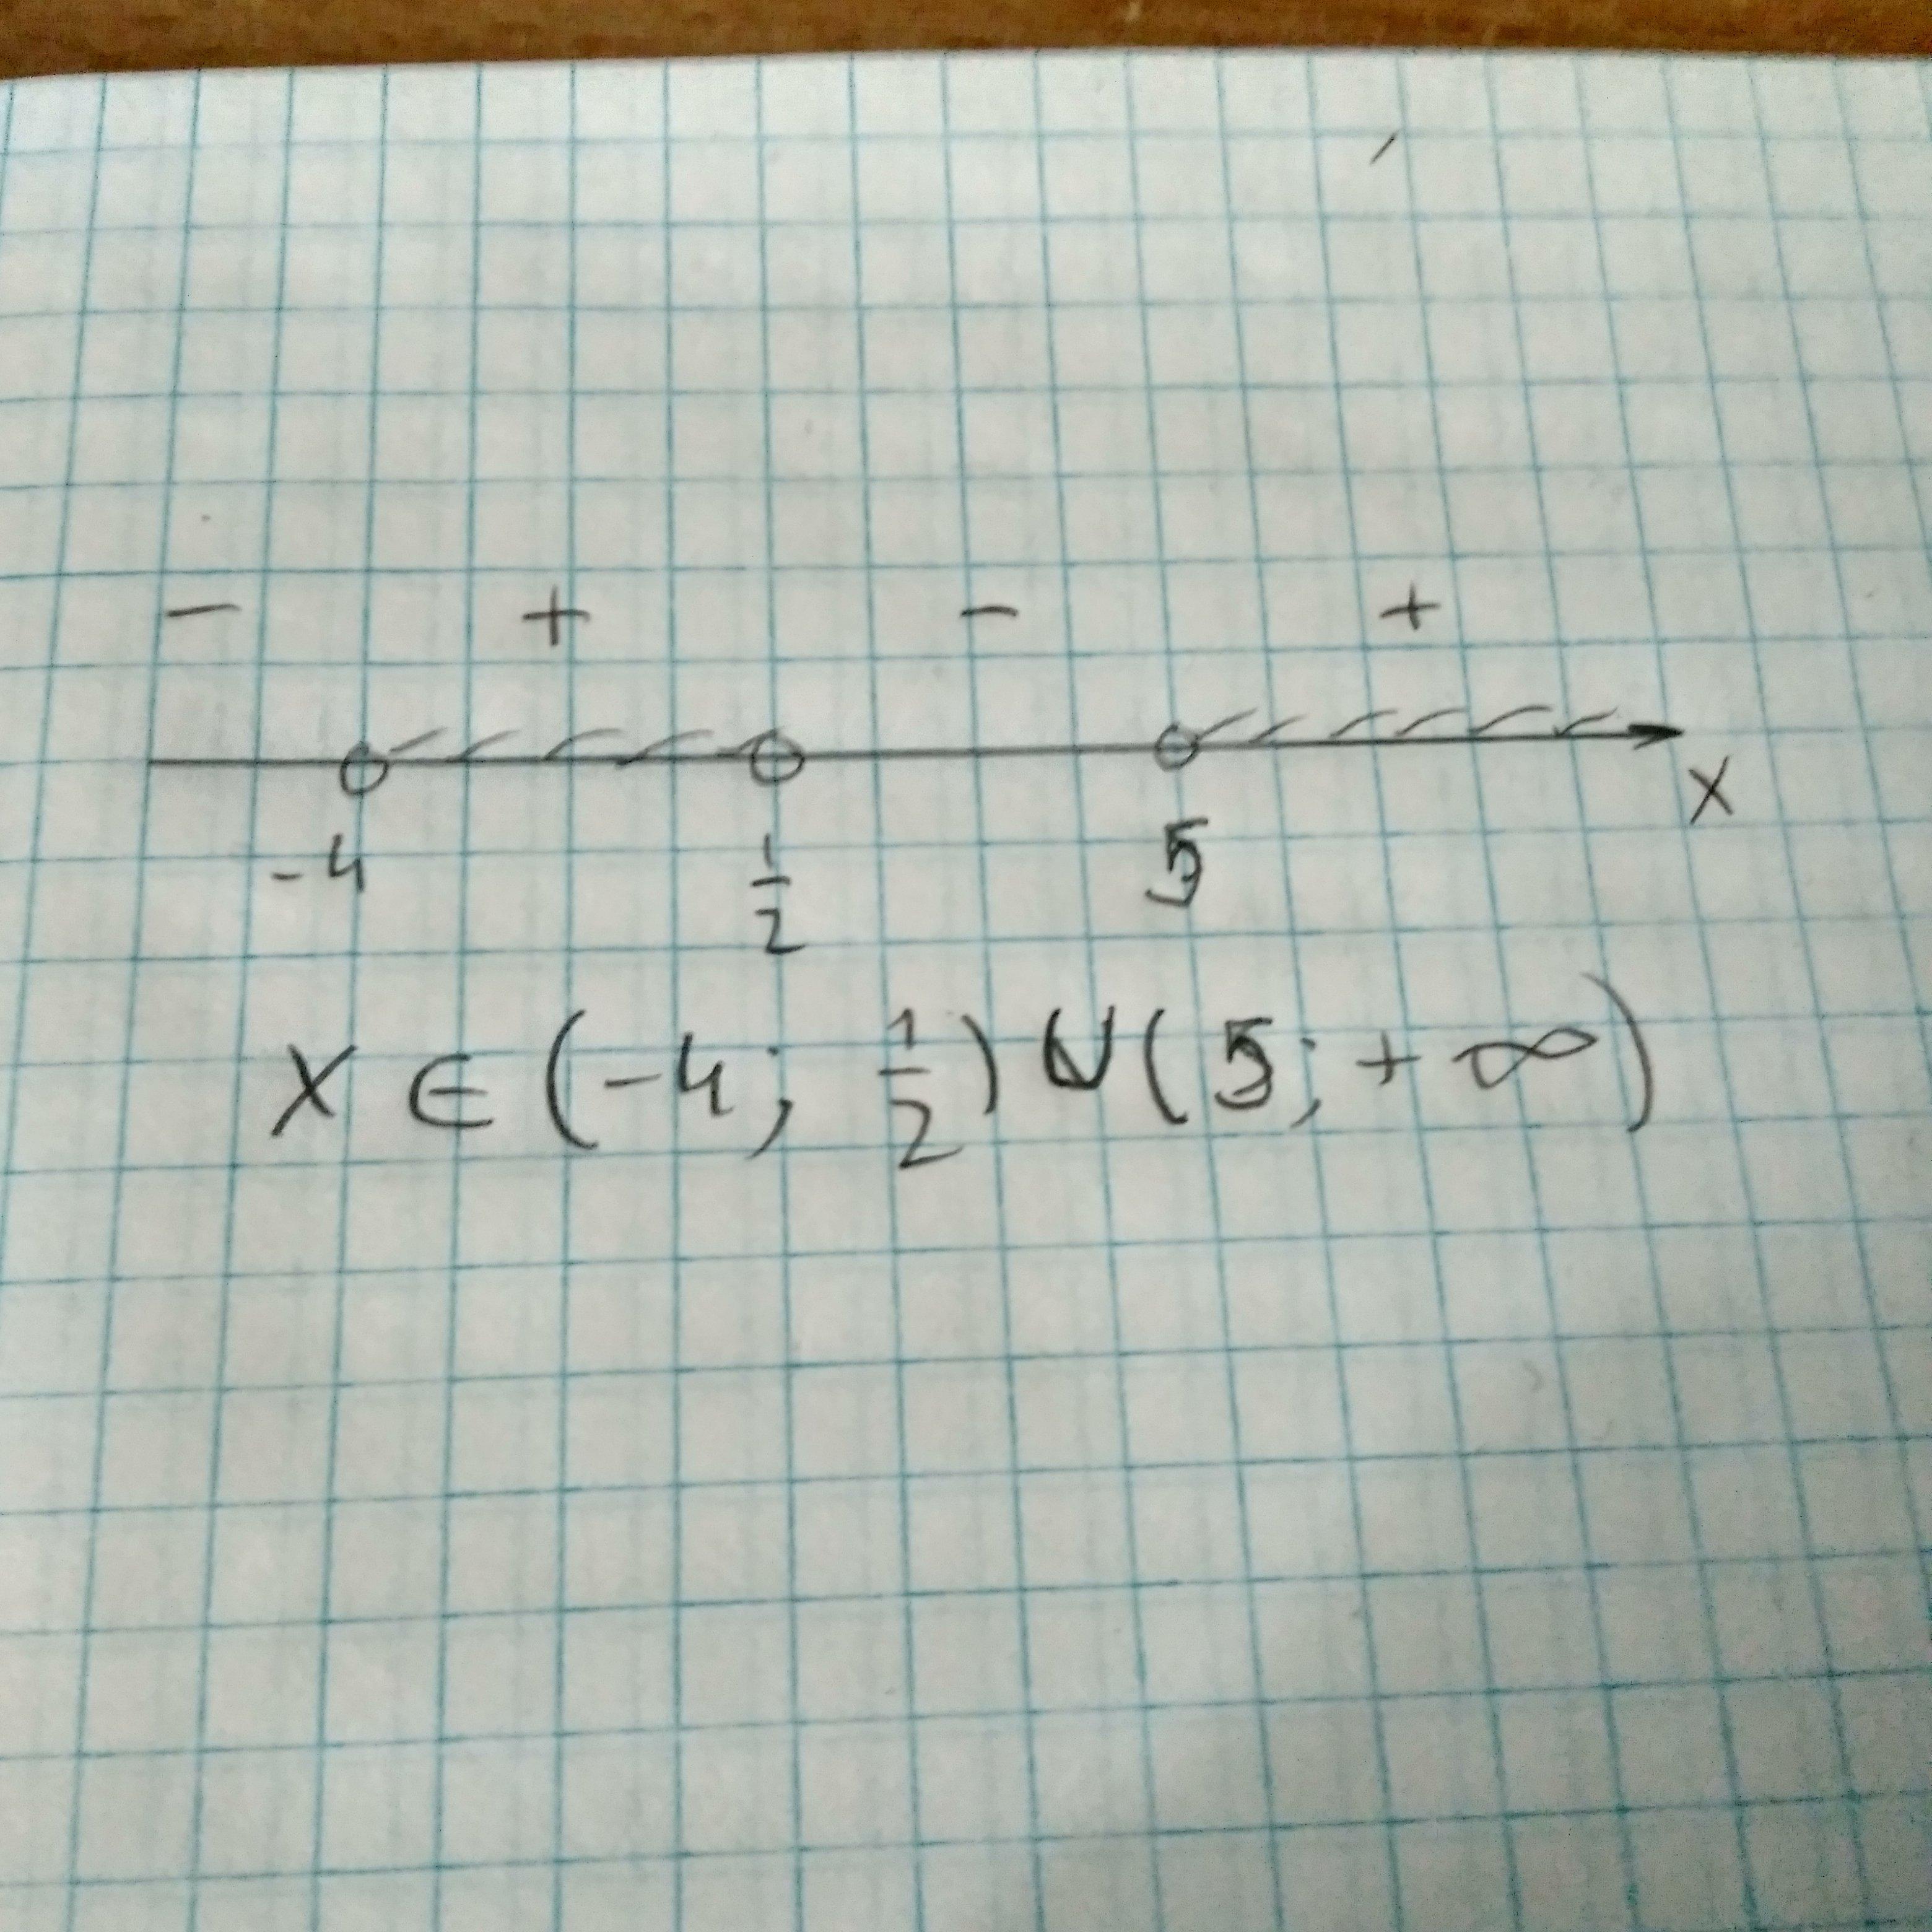 − + − +
-4 1/2 5 x
x ∈ (-4; 1/2) ∪ (5; +∞)